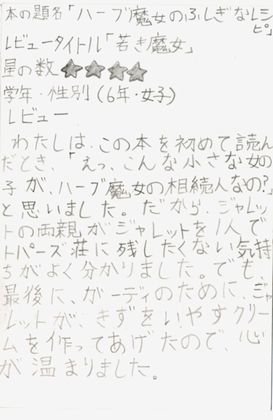 本の題名「ハーブ魔女のふしぎなレシピ」
レビュータイトル「若き魔女」
星の数★★★★
学年・性別(6年・女子)
レビュー
わたしは、この本を初めて読ん
だとき、「えっ、こんな小さな女の
子が、ハーブ魔女の相続人なの?」
と思いました。だから、ジャレッ
トの両親がジャレットを1人で
トパーズ荘に残したくない気持
ちがよく分かりました。でも、
最後に、ガーディのために、ジャ
レットが、きずをいやすクリー
ムを作ってあげたので、心
が温まりました。